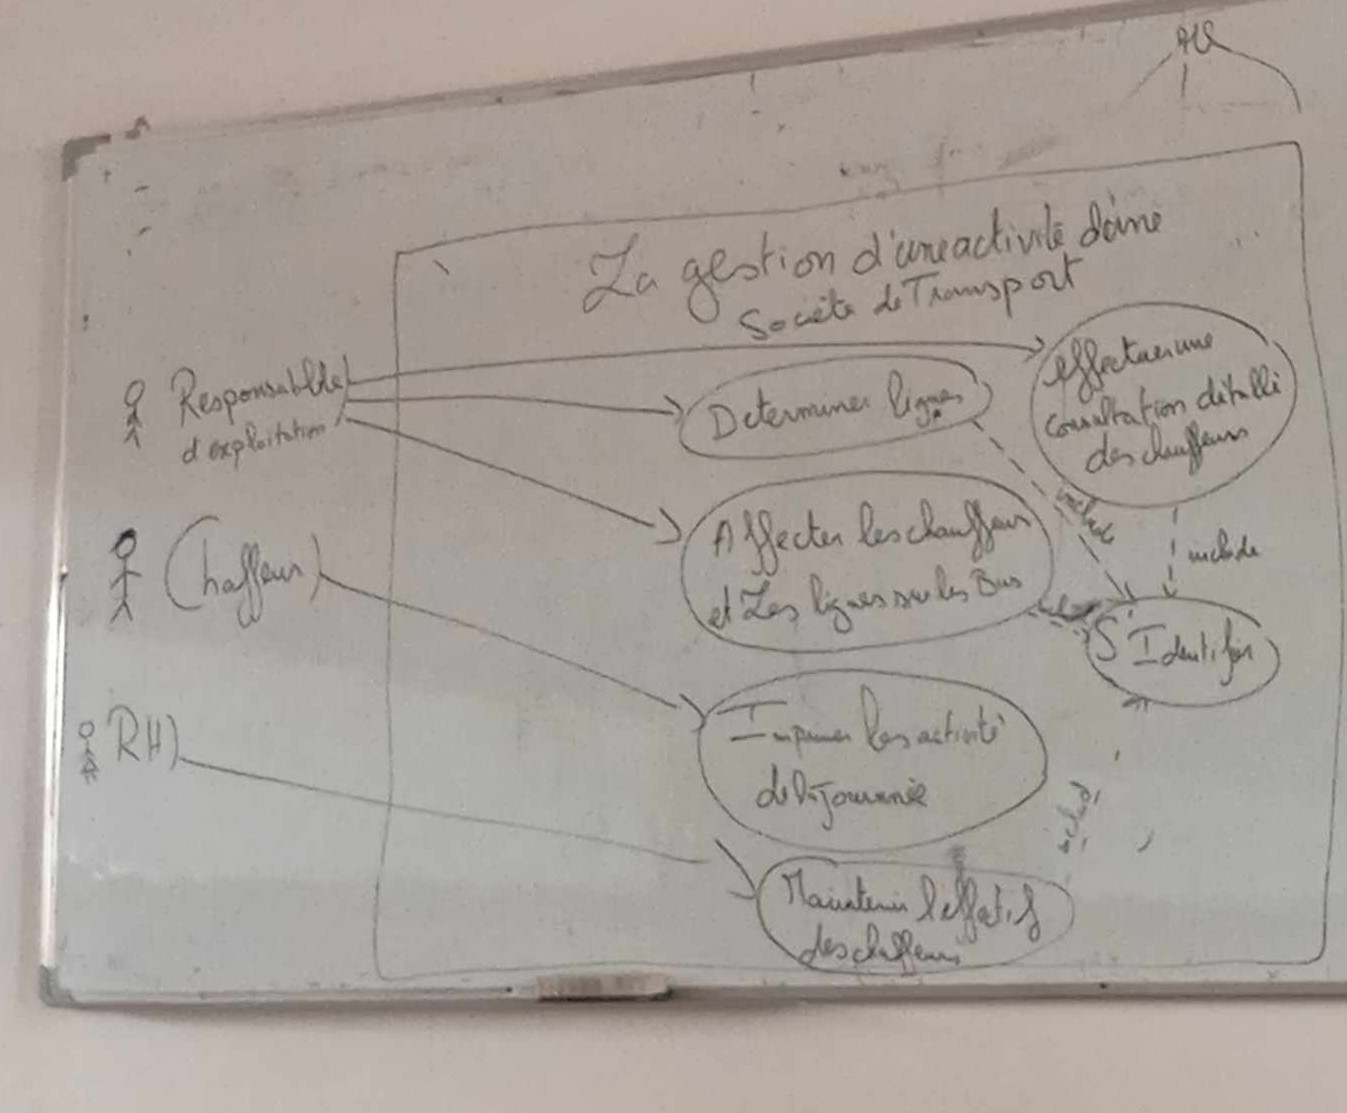 La gestion d'une activité d'une
Société de Transport
Responsable
d'exploitation
Chaffeur
RH
effectuer une
consultation détallé
des chauffeurs
Determiner lignes
Affecter les chauffeurs
et Les lignes sur les Bus
include
include
S'Identifier
Imprimer les activité
de la Journnée
includ
Maintenir l'effectif
des chaffeurs